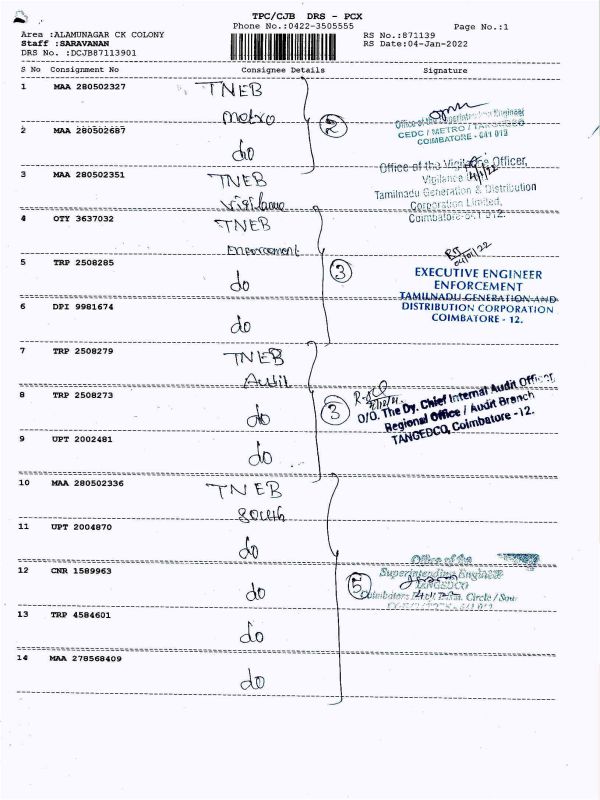 TPC/CJB DRS - PCX
Phone No.:0422-3505555
Page No.:1
Area :ALAMUNAGAR CK COLONY
RS No.:871139
Staff :SARAVANAN
RS Date:04-Jan-2022
DRS No. :DCJB87113901
S No Consignment No Consignee Details Signature
1 MAA 280502327 TNEB
metro
2 MAA 280502687 do
②
Office of the Superintending Engineer
CEDC / METRO / TANGEDCO
COIMBATORE - 641 012
3 MAA 280502351 TNEB
Vigilance
Office of the Vigilance Officer,
Vigilance
4/1/22
Tamilnadu Generation & Distribution
Corporation Limited,
Coimbatore-641 012.
4 OTY 3637032 TNEB
Enforcement
5 TRP 2508285 do
③
04/01/22
EXECUTIVE ENGINEER
ENFORCEMENT
TAMILNADU GENERATION AND
DISTRIBUTION CORPORATION
COIMBATORE - 12.
6 DPI 9981674 do
7 TRP 2508279 TNEB
Audit
8 TRP 2508273 do
③
O/O. The Dy. Chief Internal Audit Officer,
Regional Office / Audit Branch
TANGEDCO, Coimbatore -12.
9 UPT 2002481 do
10 MAA 280502336 TNEB
South
11 UPT 2004870 do
12 CNR 1589963 do
⑤
Office of the
Superintending Engineer
TANGEDCO
Circle / Sou
13 TRP 4584601 do
14 MAA 278568409 do